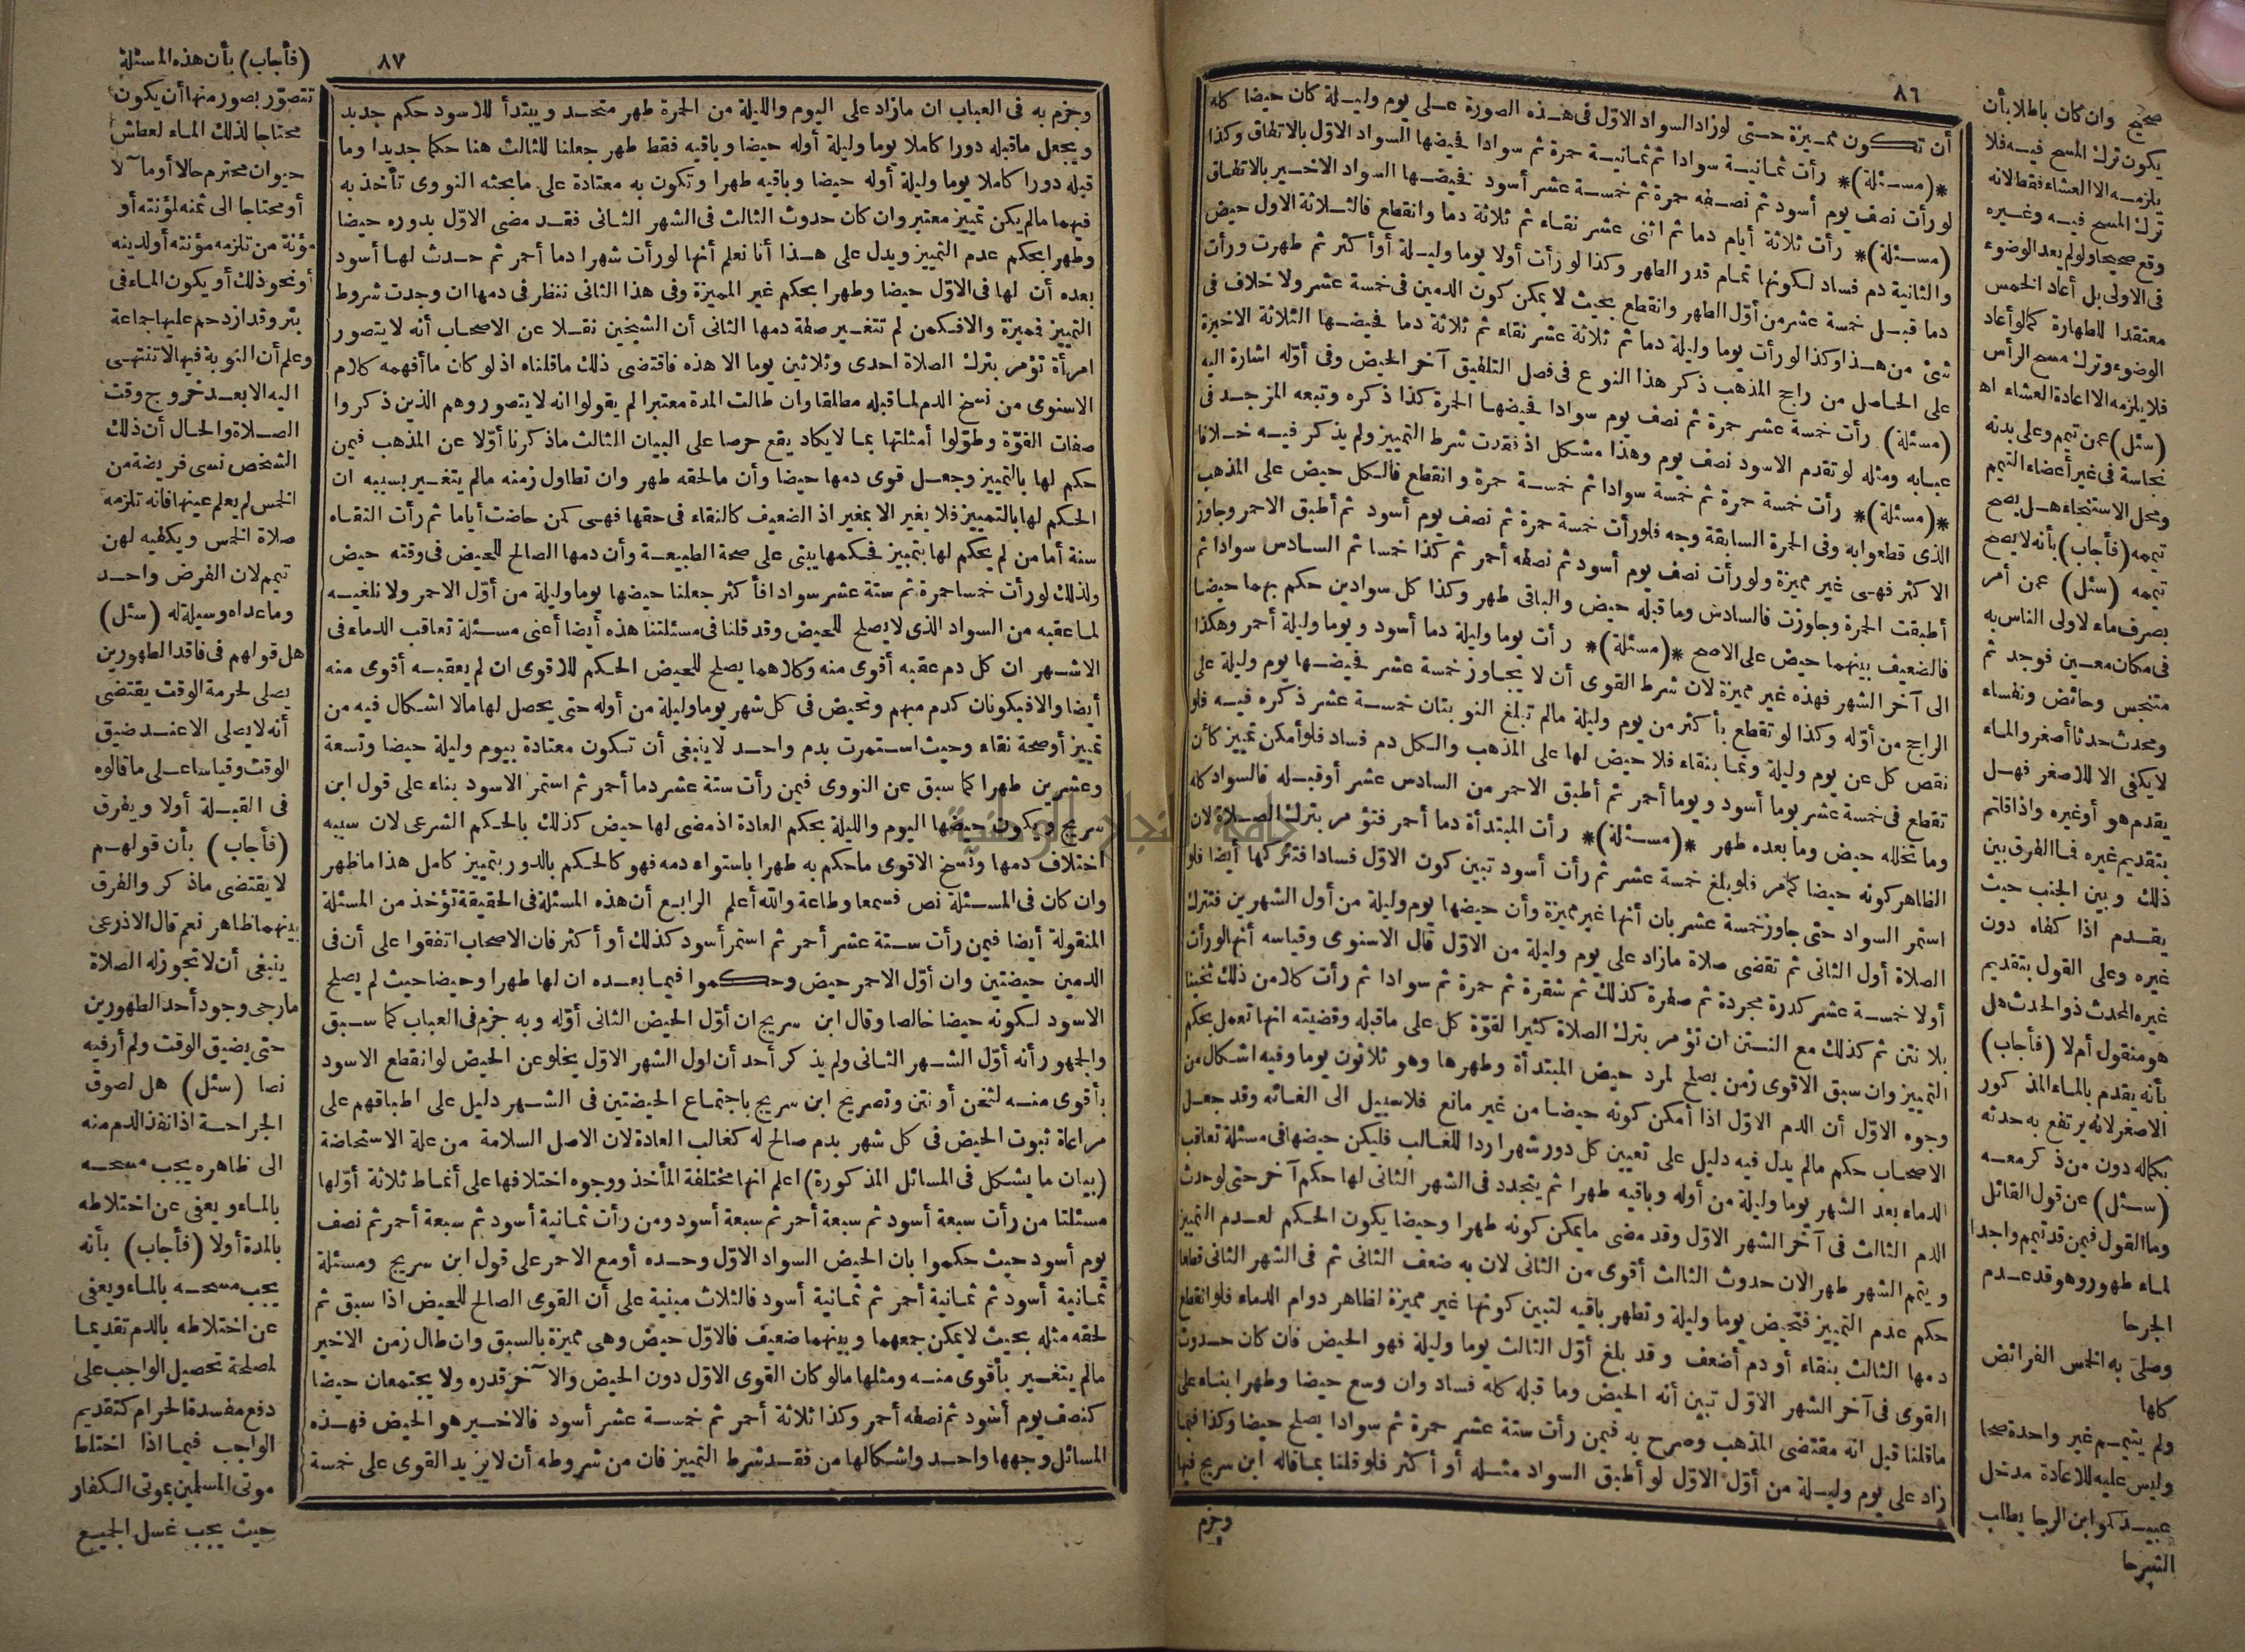 ٨٦
أن تكون مميزة حتى لوزاد السواد الاوّل فى هذه الصورة على يوم وليلة كان حيضا كله
*(مسئلة)* رأت ثمانية سوادا ثم ثمانية حمرة ثم سوادا فحيضها السواد الاوّل بالاتفاق وكذا
لورأت نصف يوم أسود ثم نصفه حمرة ثم خمسة عشر أسود فحيضها السواد الاخير بالاتفاق
(مسئلة)* رأت ثلاثة أيام دما ثم اثنى عشر نقاء ثم ثلاثة دما وانقطع فالثلاثة الاول حيض
والثانية دم فساد لكونها تمام قدر الطهر وكذا لورأت أولا يوما وليلة أوأكثر ثم طهرت ورأت
دما قبل خمسة عشر من أوّل الطهر وانقطع بحيث لا يمكن كون الدمين فى خمسة عشر ولا خلاف فى
شئ من هذا وكذا لورأت يوما وليلة دما ثم ثلاثة عشر نقاء ثم ثلاثة دما فحيضها الثلاثة الاخيرة
على الحاصل من راجح المذهب ذكر هذا النوع فى فصل التلفيق آخر الحيض وفى أوّله اشارة اليه
(مسئلة) رأت خمسة عشر حمرة ثم نصف يوم سوادا فحيضها الحمرة كذا ذكره وتبعه المزجد فى
عبابه ومثله لو تقدم الاسود نصف يوم وهذا مشكل اذ فقدت شرط التمييز ولم يذكر فيه خلافا
*(مسئلة)* رأت خمسة حمرة ثم خمسة سوادا ثم خمسة حمرة وانقطع فالكل حيض على المذهب
الذى قطعوا به وفى الحمرة السابقة وجه فلورأت خمسة حمرة ثم نصف يوم أسود ثم أطبق الاحمر وجاوز
الاكثر فهى غير مميزة ولورأت نصف يوم أسود ثم نصفه أحمر ثم كذا خمسا ثم السادس سوادا ثم
أطبقت الحمرة وجاوزت فالسادس وما قبله حيض والباقى طهر وكذا كل سوادين حكم بهما حيضا
فالضعيف بينهما حيض على الاصح *(مسئلة)* رأت يوما وليلة دما أسود ويوما وليلة أحمر وهكذا
الى آخر الشهر فهذه غير مميزة لان شرط القوى أن لا يجاوز خمسة عشر فحيضها يوم وليلة على
الراجح من أوّله وكذا لو تقطع بأكثر من يوم وليلة مالم تبلغ النوبتان خمسة عشر ذكره فيه فلو
نقص كل عن يوم وليلة وتما بنقاء فلا حيض لها على المذهب والكل دم فساد فلو أمكن تمييز كأن
تقطع فى خمسة عشر يوما أسود ويوما أحمر ثم أطبق الاحمر من السادس عشر أوقبله فالسواد كله
وما تخلله حيض وما بعده طهر *(مسئلة)* رأت المبتدأة دما أحمر فتؤمر بترك الصلاة لان
الظاهر كونه حيضا كما مر فلو بلغ خمسة عشر ثم رأت أسود تبين كون الاوّل فسادا فتتركها أيضا فلو
استمر السواد حتى جاوز خمسة عشر بان أنها غير مميزة وأن حيضها يوم وليلة من أول الشهرين فتترك
الصلاة أول الثانى ثم تقضى صلاة مازاد على يوم وليلة من الاوّل قال الاسنوى وقياسه أنها لورأت
أولا خمسة عشر كدرة مجردة ثم صفرة كذلك ثم شقرة ثم حمرة ثم سوادا ثم رأت كلا من ذلك ثخينا
بلا نتن ثم كذلك مع النتن ان تؤمر بترك الصلاة كثيرا لقوّة كل على ما قبله وقضيته انها تعمل بحكم
التمييز وان سبق الاقوى زمن يصلح لمرد حيض المبتدأة وطهرها وهو ثلاثون يوما وفيه اشكال من
وجوه الاوّل أن الدم الاوّل اذا أمكن كونه حيضا من غير مانع فلا سبيل الى الغائه وقد جعل
الاصحاب حكم مالم يدل فيه دليل على تعيين كل دور شهرا ردا للغالب فليكن حيضها فى مسئلة تعاقب
الدماء بعد الشهر يوما وليلة من أوله وباقيه طهرا ثم يتجدد فى الشهر الثانى لها حكم آخر حتى لوحدث
الدم الثالث فى آخر الشهر الاوّل وقد مضى ما يمكن كونه طهرا وحيضا يكون الحكم لعدم التمييز
ويتم الشهر طهرا لان حدوث الثالث أقوى من الثانى لان به ضعف الثانى ثم فى الشهر الثانى
حكم عدم التمييز فتحيض يوما وليلة وتطهر باقيه لتبين كونها غير مميزة لظاهر دوام الدماء فلو انقطع
دمها الثالث بنقاء أو دم أضعف وقد بلغ أوّل الثالث يوما وليلة فهو الحيض فان كان حدوث
القوى فى آخر الشهر الاوّل تبين أنه الحيض وما قبله كله فساد وان وسع حيضا وطهرا بناء على
ماقلنا قبل انه مقتضى المذهب وصرح به فيمن رأت ستة عشر حمرة ثم سوادا يصلح حيضا وكذا فيما
زاد على يوم وليلة من أوّل الاوّل لو أطبق السواد مثله أو أكثر فلو قلنا بما قاله ابن سريج فيها
وجزم
صحيح وان كان باطلا بأن
يكون ترك المسح فيه فلا
يلزمه الا العشاء فقط لانه
ترك المسح فيه وغيره
وقع صحيحا ولو لم يعد الوضوء
فى الاولى بل أعاد الخمس
معتقدا للطهارة كما لو أعاد
الوضوء وترك مسح الرأس
فلا يلزمه الا اعادة العشاء اه
(سئل) عمن تيمم وعلى بدنه
نجاسة فى غير أعضاء التيمم
ومحل الاستنجاء هل يصح
تيممه (فأجاب) بأنه لا يصح
تيممه (سئل) عمن أمر
بصرف ماء لاولى الناس به
فى مكان معين فوجد ثم
متنجس وحائض ونفساء
ومحدث حدثا أصغر والماء
لا يكفى الا للاصغر فهل
يقدم هو أو غيره واذا قلتم
بتقديم غيره فما الفرق بين
ذلك وبين الجنب حيث
يقدم اذا كفاه دون
غيره وعلى القول بتقديم
غيره المحدث ذو الحدث هل
هو منقول أم لا (فأجاب)
بأنه يقدم بالماء المذكور
الاصغر لانه يرتفع به حدثه
بكماله دون من ذكر معه
(سئل) عن قول القائل
وما القول فيمن قد تيمم واجدا
لماء طهور وهو قد عدم
الجرحا
وصلى به الخمس الفرائض
كلها
ولم يتيمم غير واحدة صحا
وليس عليه للاعادة مدخل
عبيدكمو ابن الرجا يطلب
الشرحا
٨٧
وجزم به فى العباب ان مازاد على اليوم والليلة من الحمرة طهر متحد ويبتدأ للاسود حكم جديد
ويجعل ماقبله دورا كاملا يوما وليلة أوله حيضا وباقيه فقط طهر جعلنا للثالث هنا حكما جديدا وما
قبله دورا كاملا يوما وليلة أوله حيضا وباقيه طهرا وتكون به معتادة على مابحثه النووى تأخذ به
فيهما مالم يكن تمييز معتبر وان كان حدوث الثالث فى الشهر الثانى فقد مضى الاوّل بدوره حيضا
وطهرا بحكم عدم التمييز ويدل على هذا أنا نعلم أنها لورأت شهرا دما أحمر ثم حدث لها أسود
بعده أن لها فى الاوّل حيضا وطهرا بحكم غير المميزة وفى هذا الثانى ننظر فى دمها ان وجدت شروط
التمييز فمميزة والا فكمن لم تتغير صفة دمها الثانى أن الشيخين نقلا عن الاصحاب أنه لا يتصور
امرأة تؤمر بترك الصلاة احدى وثلاثين يوما الا هذه فاقتضى ذلك ماقلناه اذ لو كان ما أفهمه كلام
الاسنوى من نسخ الدم لما قبله مطلقا وان طالت المدة معتبرا لم يقولوا انه لا يتصور وهم الذين ذكروا
صفات القوّة وطوّلوا أمثلتها بما لا يكاد يقع حرصا على البيان الثالث ماذكرنا أوّلا عن المذهب فيمن
حكم لها بالتمييز وجعل قوى دمها حيضا وأن مالحقه طهر وان تطاول زمنه مالم يتغير بسببه ان
الحكم لها بالتمييز فلا يغير الا بمغير اذ الضعيف كالنقاء فى حقها فهى كمن حاضت أياما ثم رأت النقاء
سنة أما من لم يحكم لها بتمييز فحكمها يبتى على صحة الطبيعة وأن دمها الصالح للحيض فى وقته حيض
ولذلك لورأت خمسا حمرة ثم ستة عشر سوادا فأكثر جعلنا حيضها يوما وليلة من أوّل الاحمر ولا نلغيه
لما عقبه من السواد الذى لا يصلح للحيض وقد قلنا فى مسئلتنا هذه أيضا أعنى مسئلة تعاقب الدماء فى
الاشهر ان كل دم عقبه أقوى منه وكلاهما يصلح للحيض الحكم للاقوى ان لم يعقبه أقوى منه
أيضا والا فيكونان كدم مبهم وتحيض فى كل شهر يوما وليلة من أوله حتى يحصل لها مالا اشكال فيه من
تمييز أوصحة نقاء وحيث استمرت بدم واحد لاينبغى أن تكون معتادة بيوم وليلة حيضا وتسعة
وعشرين طهرا كما سبق عن النووى فيمن رأت ستة عشر دما أحمر ثم استمر الاسود بناء على قول ابن
سريج ويكون حيضها اليوم والليلة بحكم العادة اذ مضى لها حيض كذلك بالحكم الشرعى لان سببه
اختلاف دمها ونسخ الاقوى ماحكم به طهرا باستواء دمه فهو كالحكم بالدور بتمييز كامل هذا ماظهر
وان كان فى المسئلة نص فسمعا وطاعة والله أعلم الرابع أن هذه المسئلة فى الحقيقة تؤخذ من المسئلة
المنقولة أيضا فيمن رأت ستة عشر أحمر ثم استمر أسود كذلك أو أكثر فان الاصحاب اتفقوا على أن فى
الدمين حيضتين وان أوّل الاحمر حيض وحكموا فيما بعده ان لها طهرا وحيضا حيث لم يصلح
الاسود لكونه حيضا خالصا وقال ابن سريج ان أوّل الحيض الثانى أوّله وبه جزم فى العباب كما سبق
والجمهور أنه أوّل الشهر الثانى ولم يذكر أحد أن اول الشهر الاوّل يخلو عن الحيض لو انقطع الاسود
بأقوى منه لثخن أونتن وتصريح ابن سريج باجتماع الحيضتين فى الشهر دليل على اطباقهم على
مراعاة ثبوت الحيض فى كل شهر بدم صالح له كغالب العادة لان الاصل السلامة من علة الاستحاضة
(بيان مايشكل فى المسائل المذكورة) اعلم انها مختلفة المأخذ ووجوه اختلافها على أنماط ثلاثة أوّلها
مسئلتا من رأت سبعة أسود ثم سبعة أحمر ثم سبعة أسود ومن رأت ثمانية أسود ثم سبعة أحمر ثم نصف
يوم أسود حيث حكموا بان الحيض السواد الاوّل وحده أومع الاحمر على قول ابن سريج ومسئلة
ثمانية أسود ثم ثمانية أحمر ثم ثمانية أسود فالثلاث مبنية على أن القوى الصالح للحيض اذا سبق ثم
لحقه مثله بحيث لايمكن جمعهما وبينهما ضعيف فالاوّل حيض وهى مميزة بالسبق وان طال زمن الاخير
مالم يتغير بأقوى منه ومثلها مالو كان القوى الاوّل دون الحيض والآخر قدره ولا يجتمعان حيضا
كنصف يوم أسود ثم نصفه أحمر وكذا ثلاثة أحمر ثم خمسة عشر أسود فالاخير هو الحيض فهذه
المسائل وجهها واحد واشكالها من فقد شرط التمييز فان من شروطه أن لايزيد القوى على خمسة
(فأجاب) بأن هذه المسئلة
تتصوّر بصور منها أن يكون
محتاجا لذلك الماء لعطش
حيوان محترم حالا أومآلا
أومحتاجا الى ثمنه لمؤنته أو
مؤنة من تلزمه مؤنته أولدينه
أونحو ذلك أو يكون الماء فى
بئر وقد ازدحم عليها جماعة
وعلم أن النوبة فيها لا تنتهى
اليه الا بعد خروج وقت
الصلاة والحال أن ذلك
الشخص نسى فريضة من
الخمس لم يعلم عينها فانه تلزمه
صلاة الخمس ويكفيه لهن
تيمم لان الفرض واحد
وما عداه وسيلة له (سئل)
هل قولهم فى فاقد الطهورين
يصلى لحرمة الوقت يقتضى
أنه لا يصلى الا عند ضيق
الوقت وقياسا على ماقالوه
فى القبلة أولا ويفرق
(فأجاب) بأن قولهم
لا يقتضى ماذكر والفرق
بينهما ظاهر نعم قال الاذرعى
ينبغى أن لا تجوز له الصلاة
مارجى وجود أحد الطهورين
حتى يضيق الوقت ولم أرفيه
نصا (سئل) هل لصوق
الجراحة اذا نفذ الدم منه
الى ظاهره يجب مسحه
بالماء ويعفى عن اختلاطه
بالمدة أولا (فأجاب) بأنه
يجب مسحه بالماء ويعفى
عن اختلاطه بالدم تقديما
لمصلحة تحصيل الواجب على
دفع مفسدة الحرام كتقديم
الواجب فيما اذا اختلط
موتى المسلمين بموتى الكفار
حيث يجب غسل الجميع
جامعة النجاح الوطنية